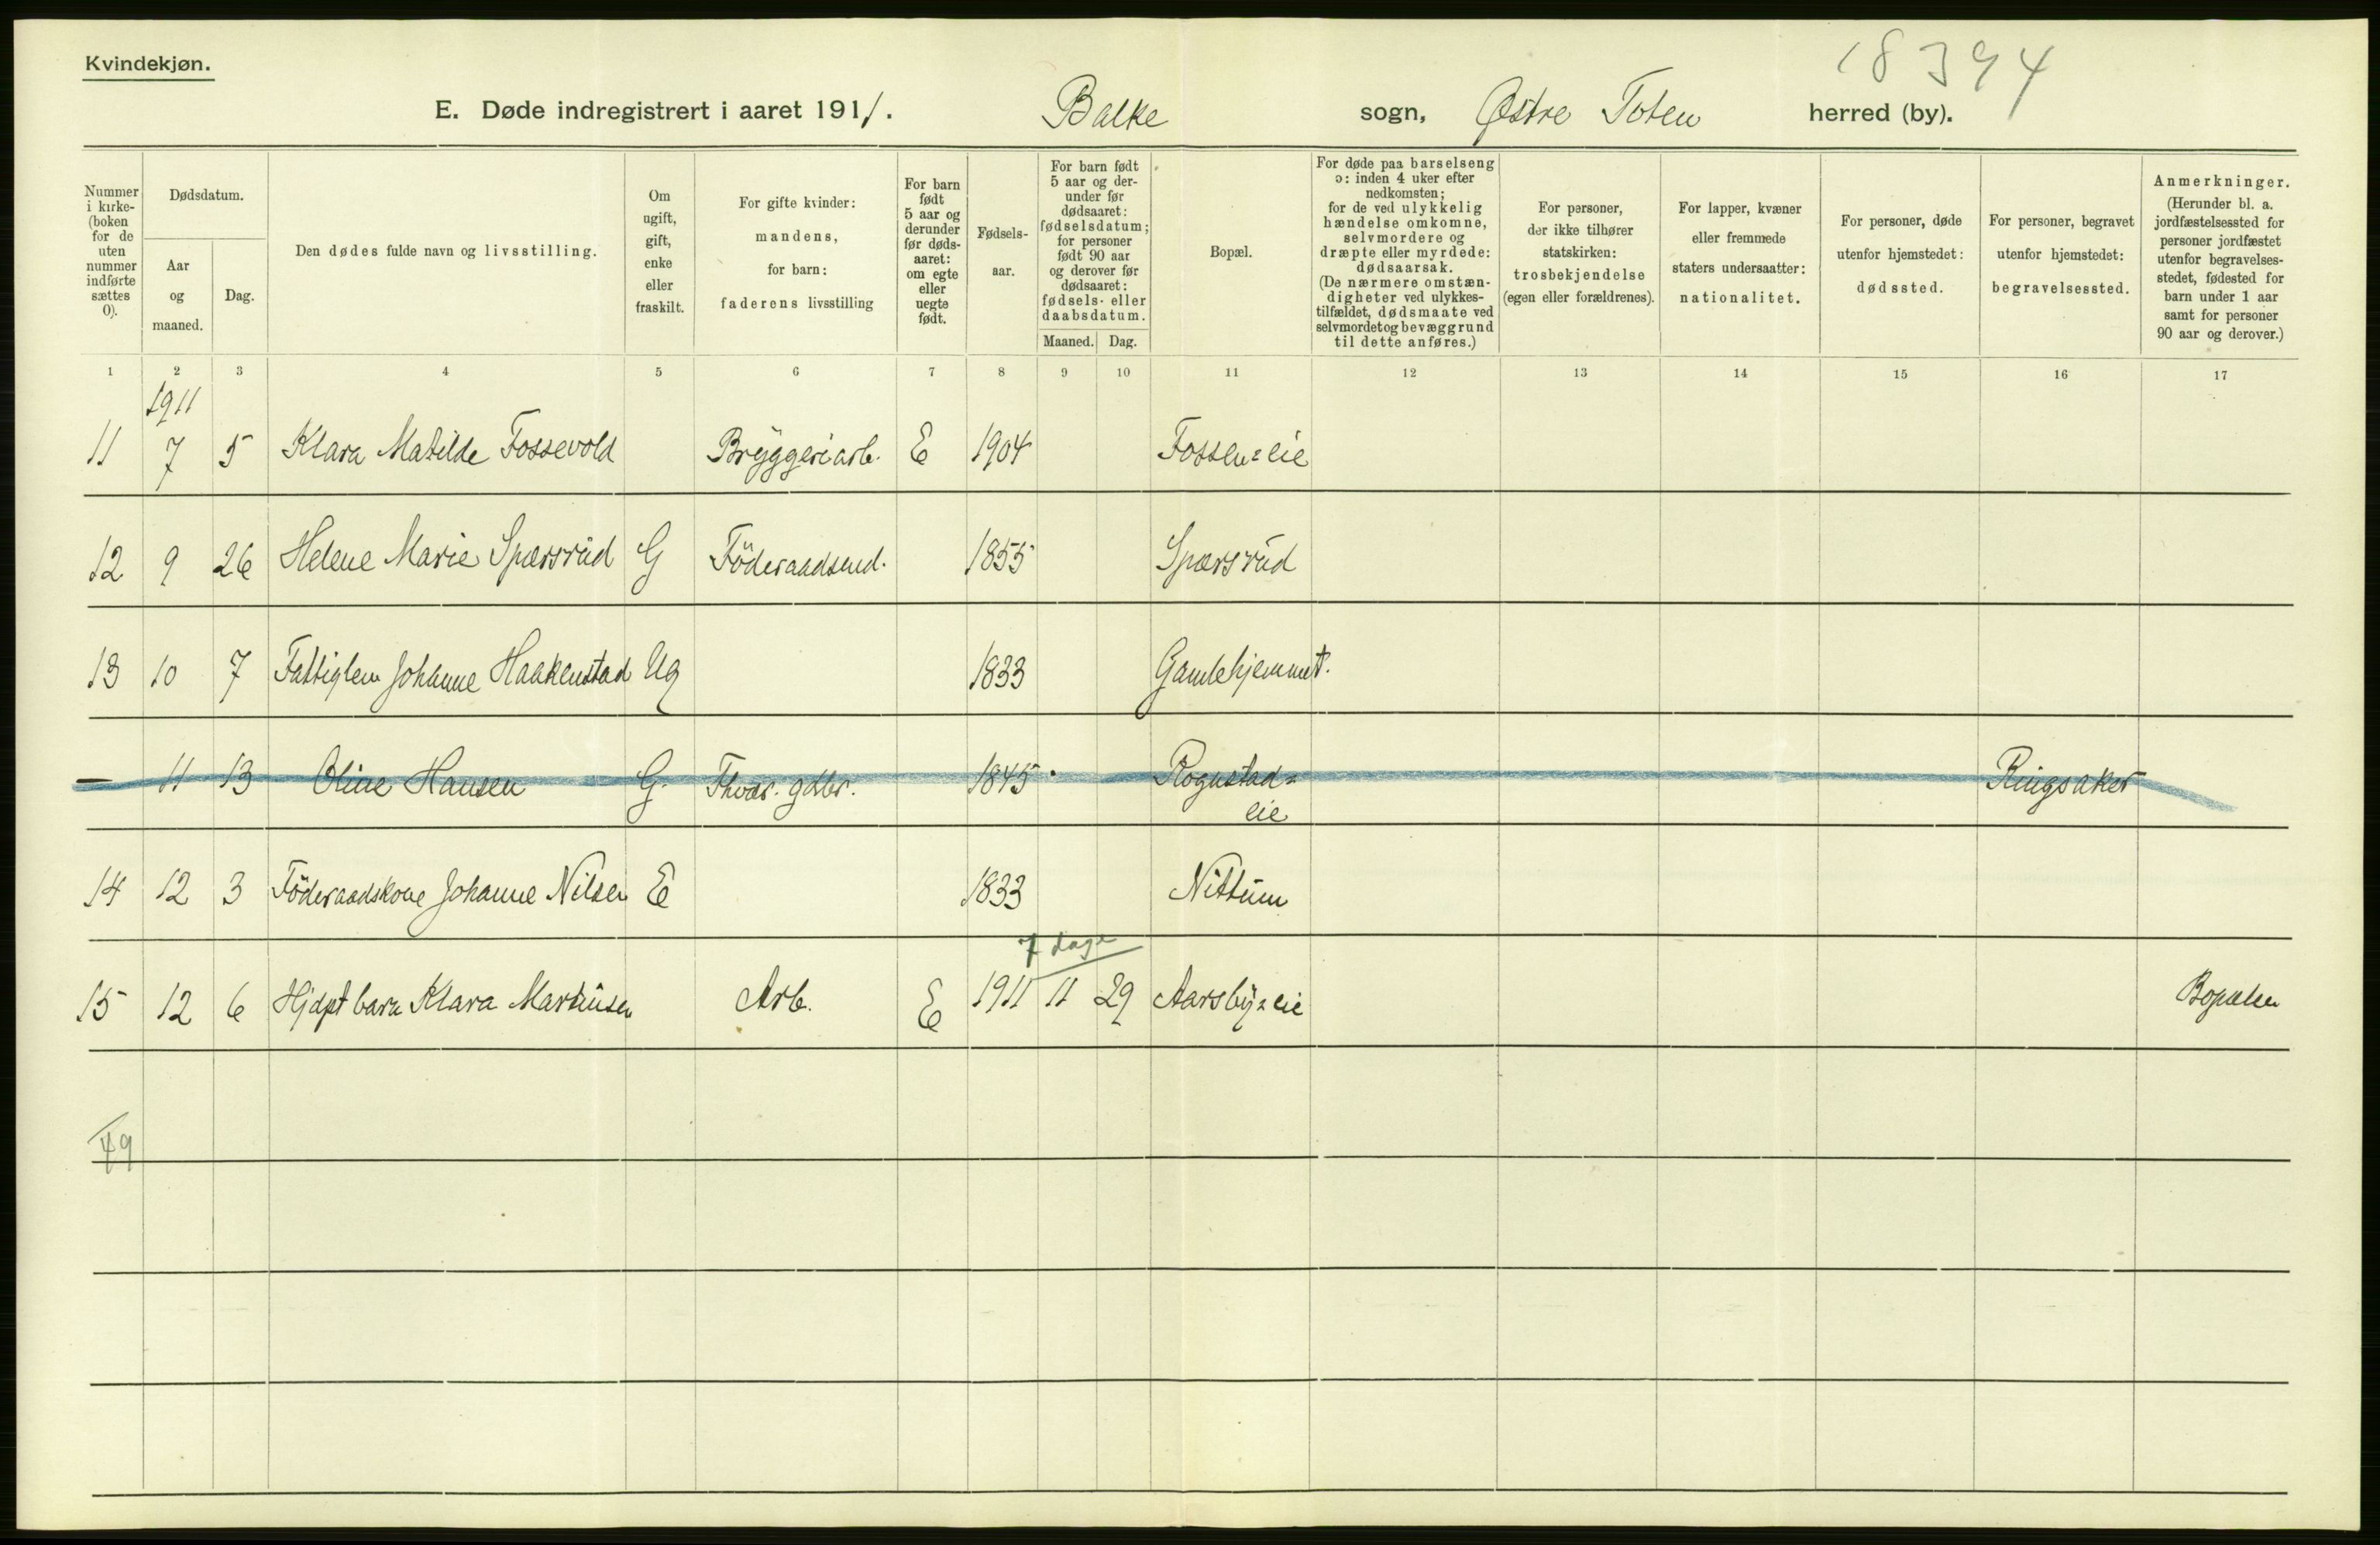 Kvindekjøn.
18394
E. Døde indregistrert i aaret 1911. Balke sogn, Østre Toten herred (by).
Nummer i kirke- (boken for de uten nummer indførte sættes 0).
Dødsdatum.
Aar og maaned.
Dag.
Den dødes fulde navn og livsstilling.
Om ugift, gift, enke eller fraskilt.
For gifte kvinder: mandens, for barn: faderens livsstilling
For barn født 5 aar og derunder før døds- aaret: om egte eller uegte født.
Fødsels- aar.
For barn født 5 aar og der- under før dødsaaret: fødselsdatum; for personer født 90 aar og derover før dødsaaret: fødsels- eller daabsdatum.
Maaned. Dag.
Bopæl.
For døde paa barselseng ɔ: inden 4 uker efter nedkomsten; for de ved ulykkelig hændelse omkomne, selvmordere og dræpte eller myrdede: dødsaarsak. (De nærmere omstæn- digheter ved ulykkes- tilfældet, dødsmaate ved selvmord et og bevæggrund til dette anføres.)
For personer, der ikke tilhører statskirken: trosbekjendelse (egen eller forældrenes).
For lapper, kvæner eller fremmede staters undersaatter: nationalitet.
For personer, døde utenfor hjemstedet: dødssted.
For personer, begravet utenfor hjemstedet: begravelsessted.
Anmerkninger. (Herunder bl. a. jordfæstelsessted for personer jordfæstet utenfor begravelses- stedet, fødested for barn under 1 aar samt for personer 90 aar og derover.)
1 2 3 4 5 6 7 8 9 10 11 12 13 14 15 16 17
1911
11 7 5 Klara Matilde Fossevold Bryggeriarb. E 1904 Fossen=eie
12 9 26 Helene Marie Spærsrud G Föderaadsmd. 1855 Spærsrud
13 10 7 Fattiglem Johanne Haakenstad Ug 1833 Gamlehjemmet.
— 11 13 Oline Hansen G. Fhvær. gdbr. 1845 Rognstad= Ringsaker
eie
14 12 3 Föderaadskone Johanne Nilsen E 1833 Nittum
7 dage
15 12 6 Hjdøpt barn Klara Martinsen Arb. E 1911 11 29 Aarsby=eie Bopælen
49